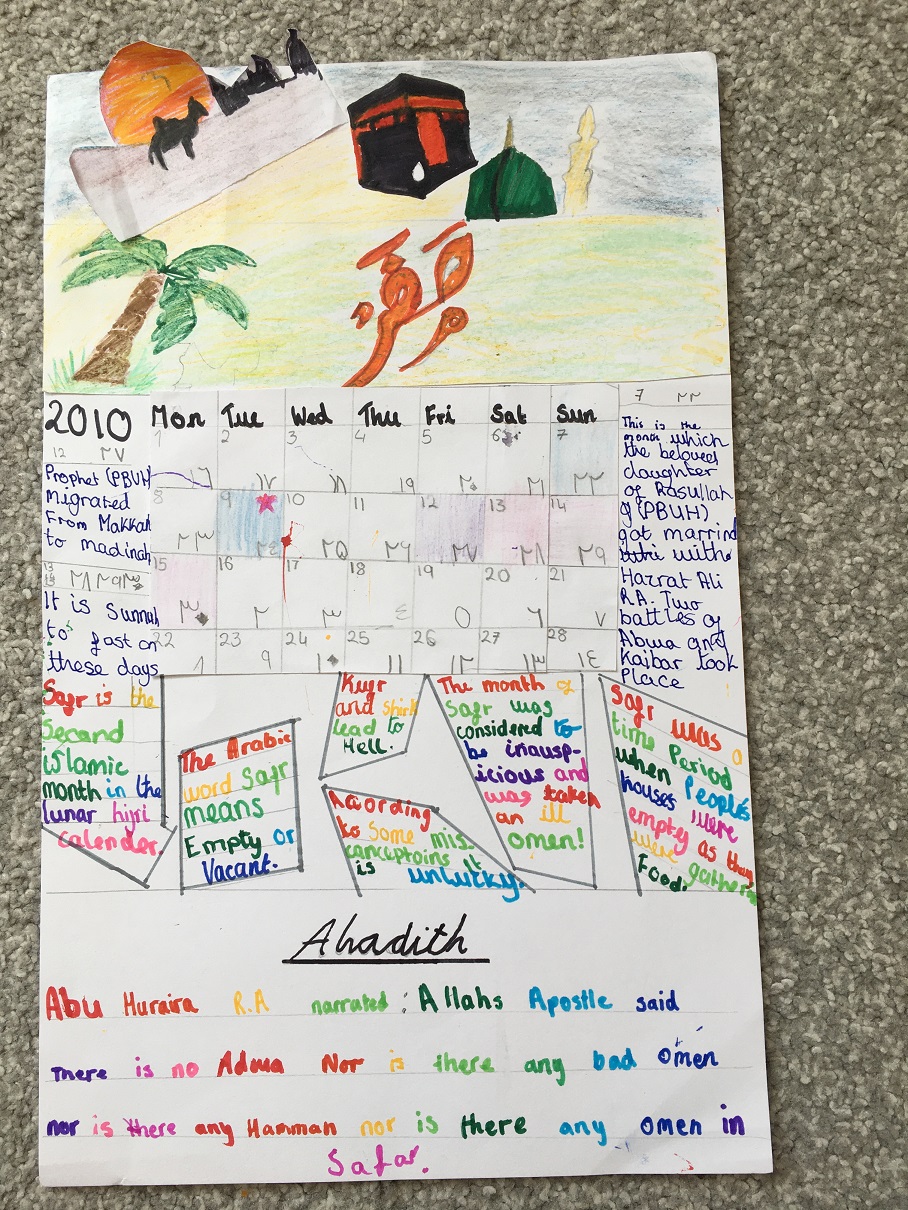 2010
Mon Tue Wed Thu Fri Sat Sun
1 2 3 4 5 6 7
١٦ ١٧ ١٨ ١٩ ٢٠ ٢١ ٢٢
8 9 10 11 12 13 14
٢٣ ٢٤ ٢٥ ٢٦ ٢٧ ٢٨ ٢٩
15 16 17 18 19 20 21
٣٠ ٢ ٣ ٤ ٥ ٦ ٧
22 23 24 25 26 27 28
٨ ٩ ١٠ ١١ ١٢ ١٣ ١٤
12 ٢٧
Prophet (PBUH)
migrated
From Makkah
to madinah
13 ٢٨ ٢٩
It is Sunnah
to fast on
these days
7 ٢٢
This is the
month which
the beloved
daughter
of Rasullah
(PBUH)
got marrind
with
Hazrat Ali
RA. Two
battles of
Abwa and
Kaibar took
Place
Safr is the
Second
islamic
month in the
lunar hijri
calender.
The Arabic
word Safr
means
Empty or
Vacant.
Kufr
and Shirk
lead to
Hell.
Acording
to Some mis-
conceptoins it
is unlucky.
The month of
Safr was
considered to
be inausp-
icious and
was taken
an ill
omen!
Safr was a
time Period
when People's
houses were
empty as they
were gathering
Food.
Ahadith
Abu Huraira R.A narrated : Allahs Apostle said
There is no Adwa Nor is there any bad omen
nor is there any Hamman nor is there any omen in
Safar.